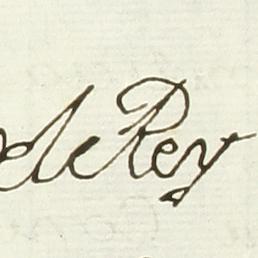 de Rey